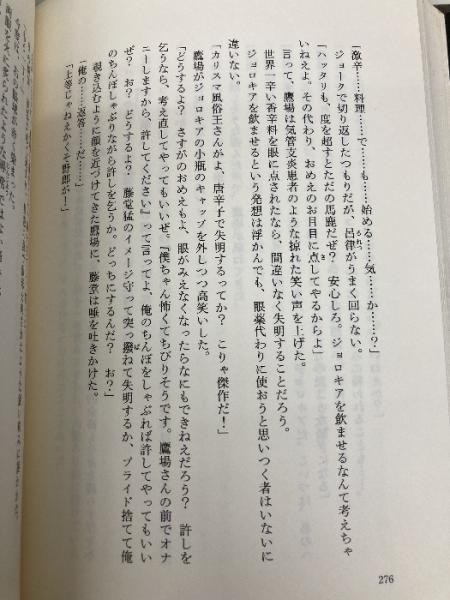 「激辛……料理……で……でも……始める……気……か……？」
ジョークで切り返したつもりだが、呂律がうまく回らない。
「ハッタリも、度を超すとただの馬鹿だぜ？　安心しろ。ジョロキアを飲ませるなんて考えちゃ
いねえよ。その代わり、おめえのお目目に点してやるからよ」
言って、鷹場は気管支炎患者のような掠れた笑い声を上げた。
世界一辛い香辛料を眼に点されたなら、間違いなく失明することだろう。
ジョロキアを飲ませるという発想は浮かんでも、眼薬代わりに使おうと思いつく者はいないに
違いない。
「カリスマ風俗王さんがよ、唐辛子で失明するってか？　こりゃ傑作だ！」
鷹場がジョロキアの小瓶のキャップを外しつつ高笑いした。
「どうするよ？　さすがのおめえもよ、眼がみえなくなったらなにもできねえだろう？　許しを
乞うなら、考え直してやってもいいぜ。『僕ちゃん怖くてちびりそうです。鷹場さんの前でオナ
ニーしますから、許してください』って言ってよ、俺のちんぽをしゃぶれば許してやってもいい
ぜ？　お？　どうするよ？　藤堂猛のイメージ守って突っ撥ねて失明するか、プライド捨てて俺
のちんぽしゃぶりながら許しを乞うか。どっちにするんだ？　お？」
覗き込むように顔を近づけてきた鷹場に、藤堂は唾を吐きかけた。
「俺の……返答……だ……」
「上等じゃねえかくそ野郎が！」
276